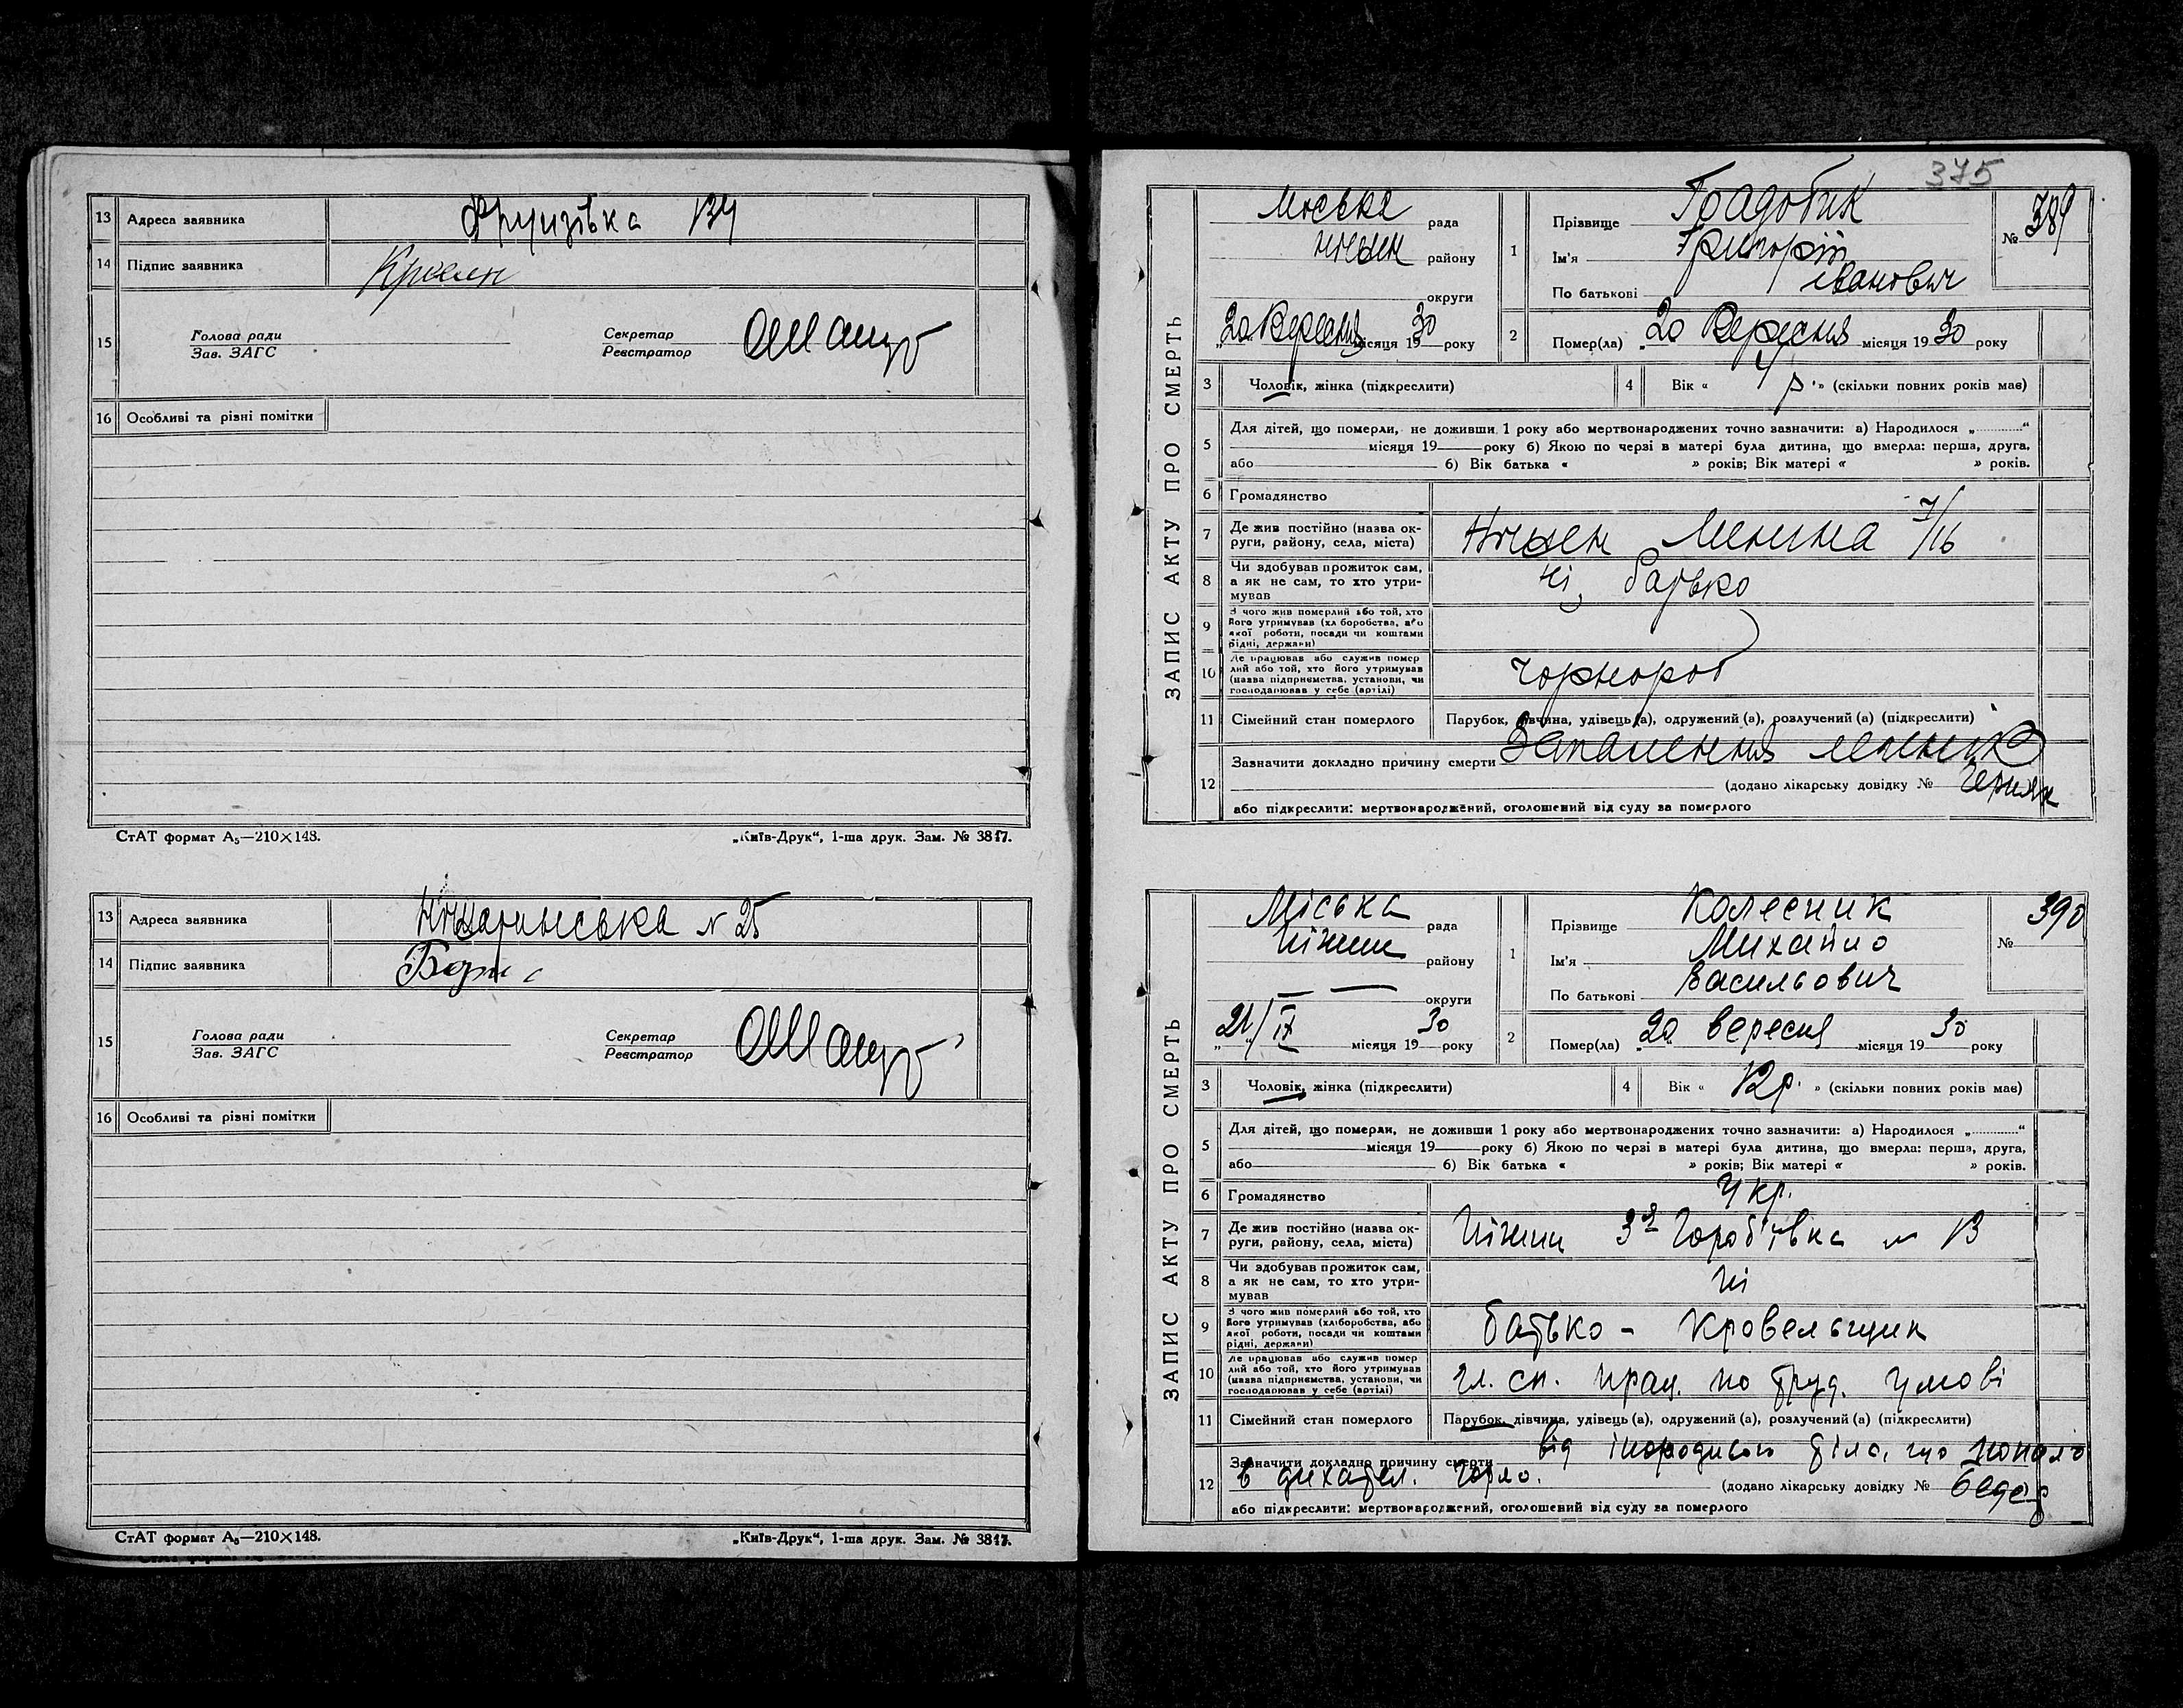 13 Адреса заявника Фрунзівка 134
14 Підпис заявника
15 Голова ради
Зав. ЗАГС
Секретар
Реєстратор
16 Особливі та різні помітки
СтАТ формат А₅—210×148. „Київ-Друк“, 1-ша друк. Зам. № 3817.
13 Адреса заявника № 25
14 Підпис заявника
15 Голова ради
Зав. ЗАГС
Секретар
Реєстратор
16 Особливі та різні помітки
СтАТ формат А₅—210×148. „Київ-Друк“, 1-ша друк. Зам. № 3817.
375
ЗАПИС АКТУ ПРО СМЕРТЬ
Міська рада
Ніжен району
округи
„20 Вересня місяця 1930 року
1 Прізвище
Ім'я Григорій
По батькові Іванович
№ 389
2 Помер(ла) „20 Вересня місяця 1930 року
3 Чоловік, жінка (підкреслити)
4 Вік « 4 р. » (скільки повних років має)
5 Для дітей, що померли, не доживши 1 року або мертвонароджених точно зазначити: а) Народилося „ “
місяця 19 року б) Якою по черзі в матері була дитина, що вмерла: перша, друга,
або б) Вік батька « » років; Вік матері « » років.
6 Громадянство
7 Де жив постійно (назва ок-
руги, району, села, міста) Ніжен Леніна 7/16
8 Чи здобував прожиток сам,
а як не сам, то хто утри-
мував ні, батько
9 З чого жив померлий або той, хто
його утримував (хліборобства, або
якої роботи, посади чи коштами
рідні, держави)
10 Де працював або служив помер
лий або той, хто його утримував
(назва підприємства, установи, чи
господарював у себе (артілі) чорнороб
11 Сімейний стан померлого Парубок, дівчина, удівець (а), одружений (а), розлучений (а) (підкреслити)
12 Зазначити докладно причину смерти Запалення
(додано лікарську довідку №
або підкреслити: мертвонароджений, оголошений від суду за померлого
ЗАПИС АКТУ ПРО СМЕРТЬ
Міська рада
Ніжин району
— — округи
„21/IX місяця 1930 року
1 Прізвище Колесник
Ім'я Михайло
По батькові Васильович
№ 390
2 Помер(ла) „20 вересня місяця 1930 року
3 Чоловік, жінка (підкреслити)
4 Вік « 12 р. » (скільки повних років має)
5 Для дітей, що померли, не доживши 1 року або мертвонароджених точно зазначити: а) Народилося „ “
місяця 19 року б) Якою по черзі в матері була дитина, що вмерла: перша, друга,
або б) Вік батька « » років; Вік матері « » років.
6 Громадянство Укр.
7 Де жив постійно (назва ок-
руги, району, села, міста) Ніжин 3я Горобівка № 13
8 Чи здобував прожиток сам,
а як не сам, то хто утри-
мував ні
9 З чого жив померлий або той, хто
його утримував (хліборобства, або
якої роботи, посади чи коштами
рідні, держави) батько - кровельщик
10 Де працював або служив помер
лий або той, хто його утримував
(назва підприємства, установи, чи
господарював у себе (артілі) чл. сп. прац. по труд. умові
11 Сімейний стан померлого Парубок, дівчина, удівець (а), одружений (а), розлучений (а) (підкреслити)
від інородного тіла, що попало
12 Зазначити докладно причину смерти
в дихател. горло.
(додано лікарську довідку №
або підкреслити: мертвонароджений, оголошений від суду за померлого